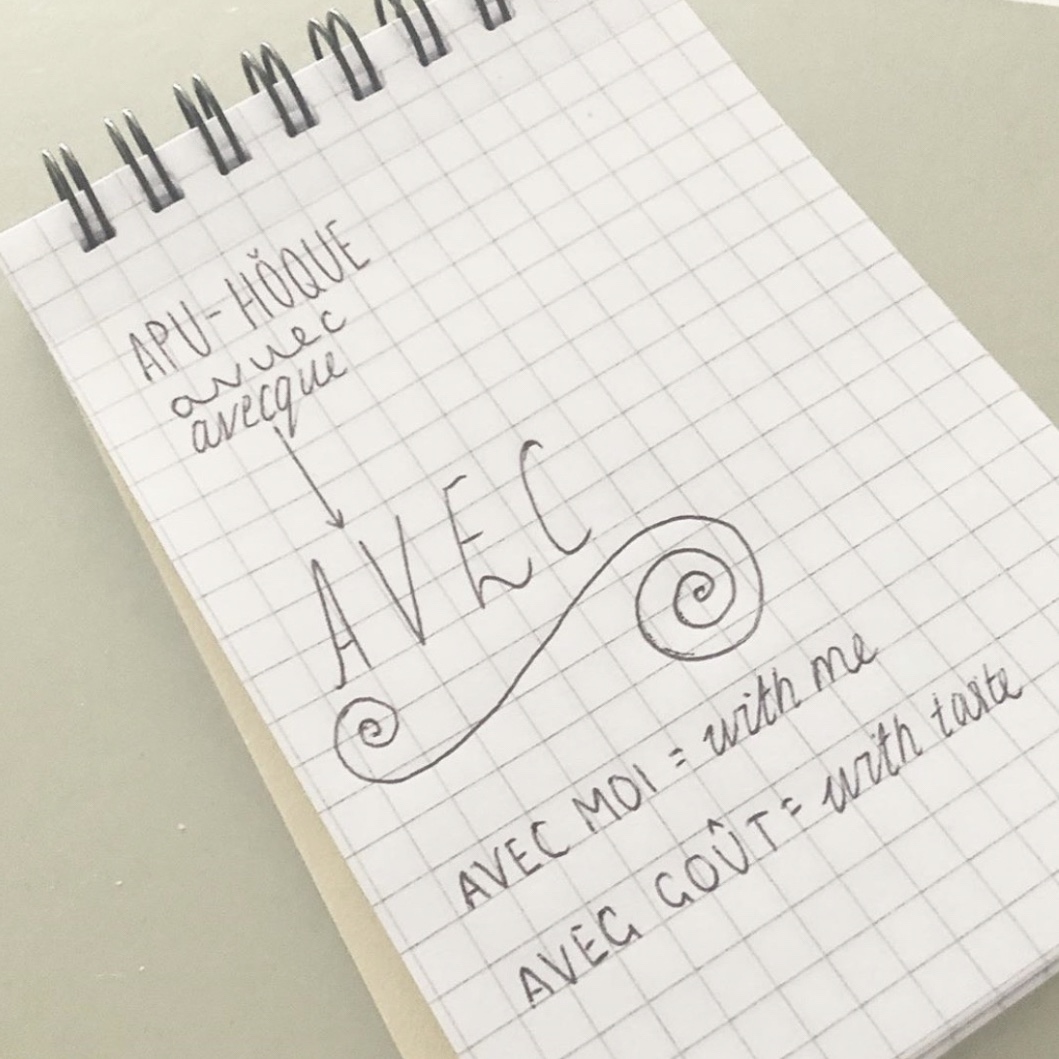 APU-HŎQUE
avuec
avecque
AVEC
AVEC MOI = with me
AVEC GOÛT = with taste